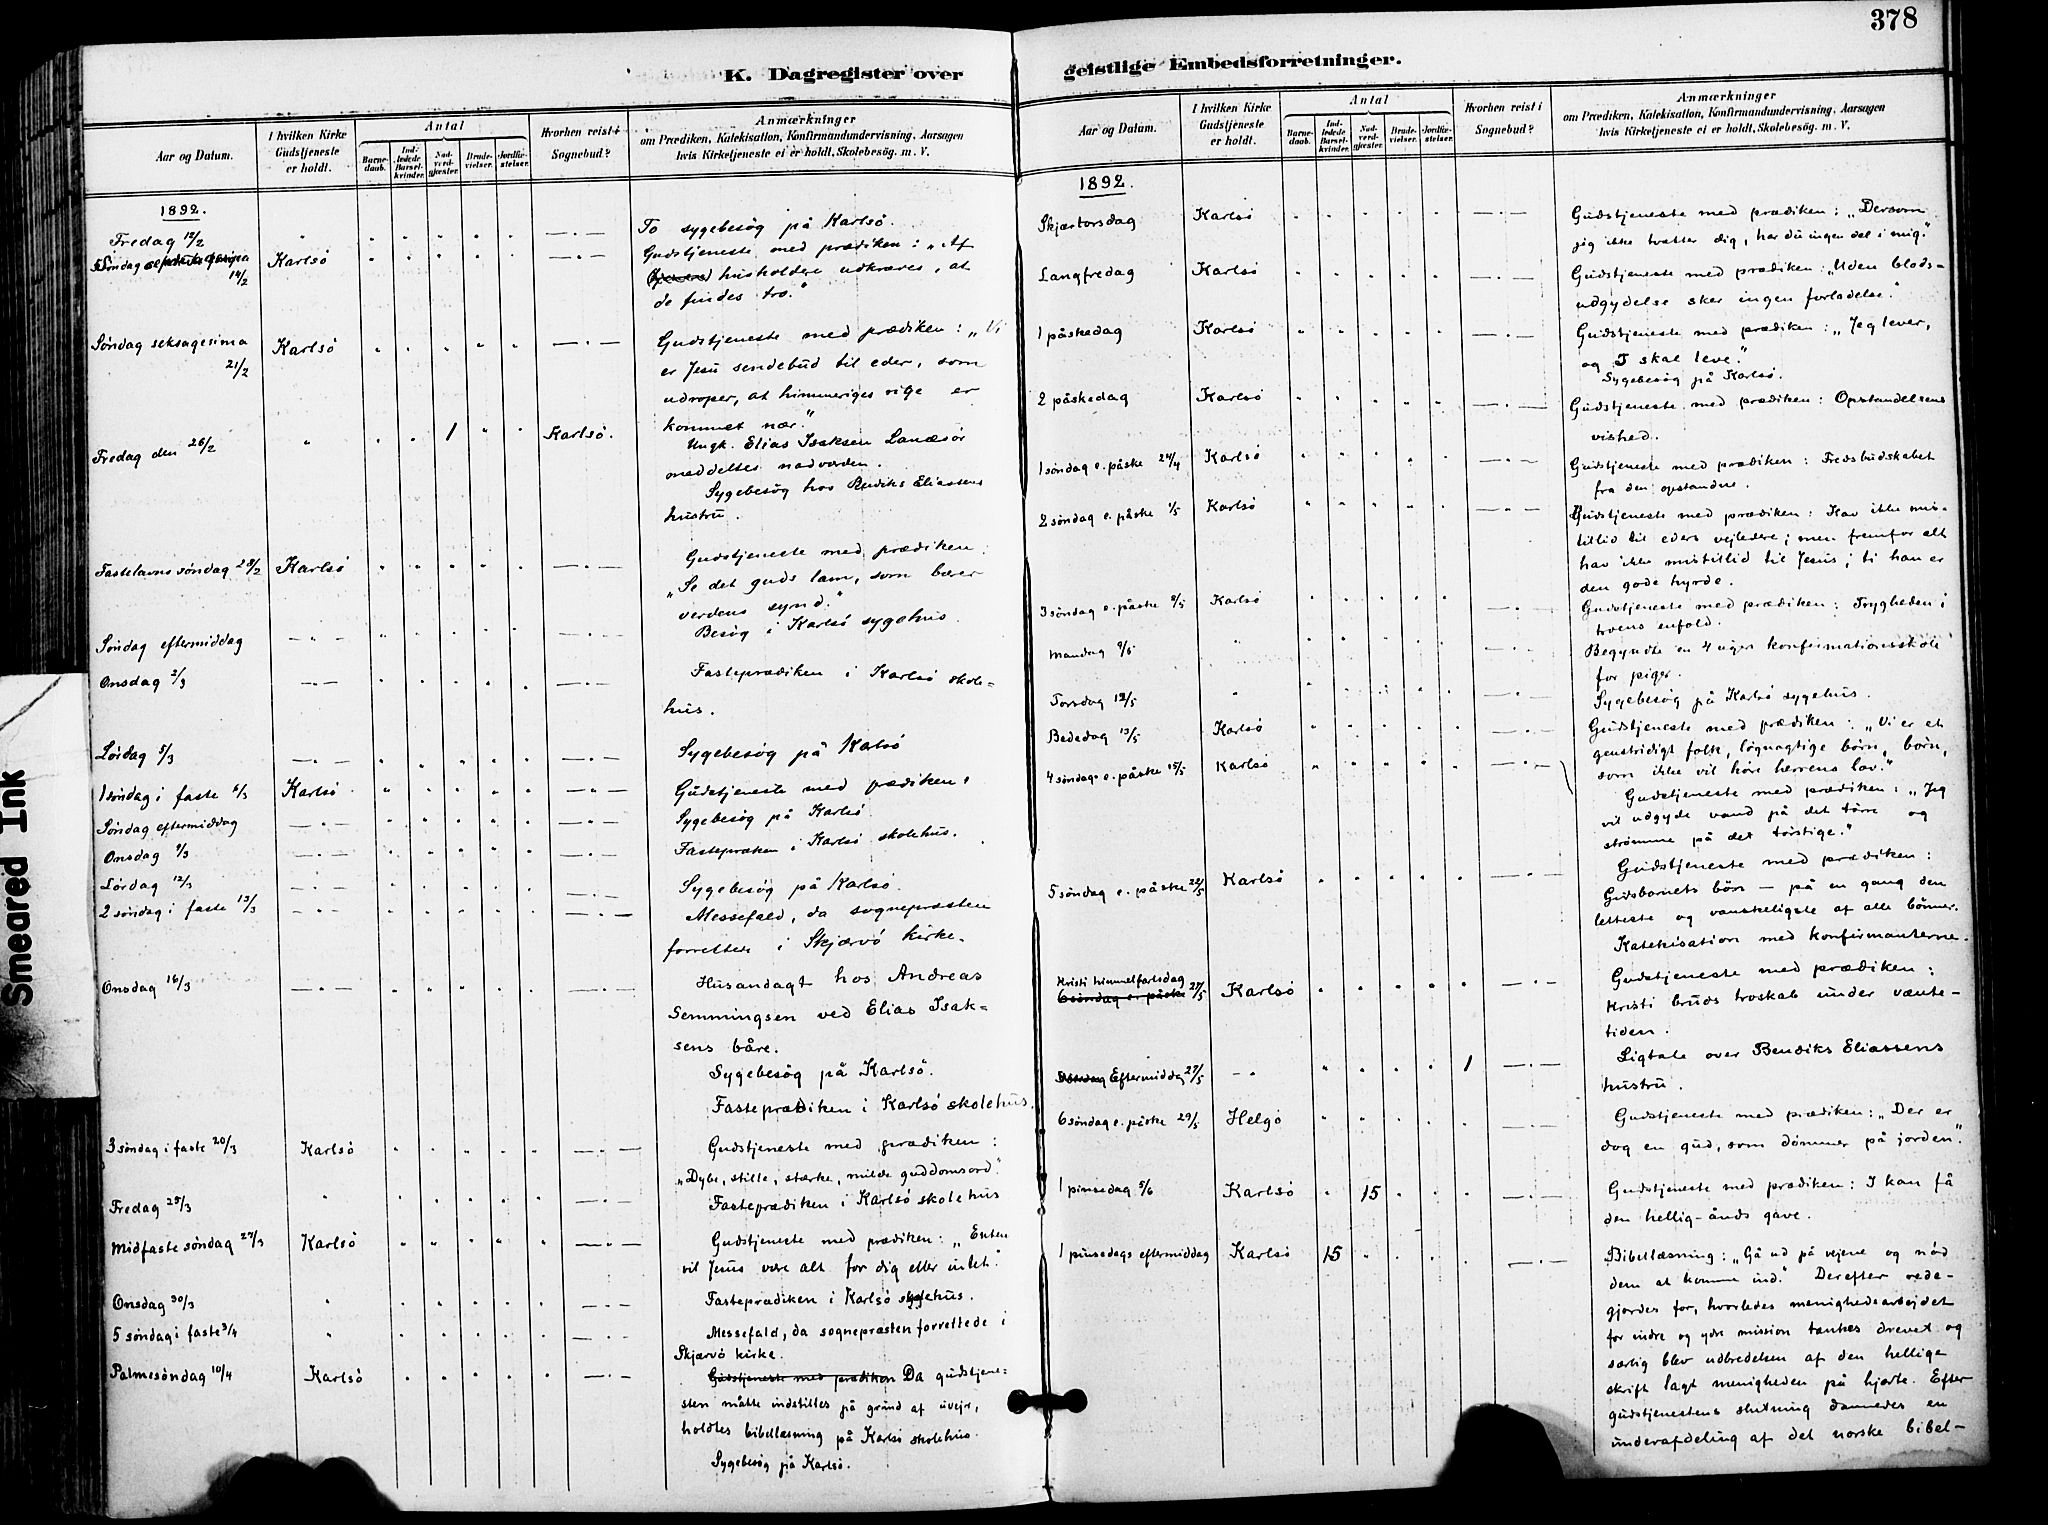 378
K. Dagregister over
geistlige Embedsforretninger.
Smeared Ink
Aar og Datum.
I hvilken Kirke Gudstjeneste er holdt.
Antal
Barnedaab.
Indledede Barselkvinder.
Nadverdgjæster.
Brudevielser.
Jordfæstelser.
Hvorhen reist i Sognebud?
Anmærkninger
om Prædiken, Katekisation, Konfirmandundervisning, Aarsagen
hvis Kirketjeneste ei er holdt, Skolebesög. m. V.
1892.
Fredag 12/2
To sygebesøg på Karlsö.
Söndag 14/2 Karlsö
Gudstjeneste med prædiken: „Af
husholdere udkræves, at
de findes tro."
Söndag seksagesima 21/2 Karlsö
Gudstjeneste med prædiken: „Vi
er Jesu sendebud til eder, som
udroper, at himmeriges rige er
kommet nær."
Fredag den 26/2 1 Karlsö.
Ungk. Elias Isaksen Lanesör
meddeltes nadverden.
Sygebesög hos Bendiks Eliassens
hustru.
Fastelavns söndag 28/2 Karlsö
Gudstjeneste med prædiken:
„Se det guds lam, som bærer
verdens synd."
Söndag eftermiddag
Besög i Karlsö sygehus.
Onsdag 2/3
Fasteprædiken i Karlsö skole=
hus.
Lördag 5/3
Sygebesög på Kalsö
1 söndag i faste 6/3 Karlsö
Gudstjeneste med prædiken.
Söndag eftermiddag
Sygebesög på Karlsö
Onsdag 9/3
Fastepræken i Karlsö skolehus.
Lördag 12/3
Sygebesög på Karlsö.
2 söndag i faste 13/3
Messefald, da sognepræsten
forretter i Skjærvö kirke.
Onsdag 16/3
Husandagt hos Andreas
Semmingsen ved Elias Isak=
sens båre.
Sygebesög på Karlsö.
Fasteprædiken i Karlsö skolehus.
3 söndag i faste 20/3 Karlsö
Gudstjeneste med prædiken:
„Dybe, stille, stærke, milde guddomsord."
Fredag 25/3
Fasteprædiken i Karlsö skolehus
Midfaste söndag 27/3 Karlsö
Gudstjeneste med prædiken: „Enten
vil Jesus være alt for dig eller intet."
Onsdag 30/3
Fasteprædiken i Karlsö
5 söndag i faste 3/4
Messefald, da sognepræsten forrettede i
Skjærvö kirke.
Palmesöndag 10/4 Karlsö
Gudstjeneste med prædiken Da gudstjene=
sten måtte indstilles på grund af uvejr,
holdtes bibellæsning på Karlsö skolehus.
Sygebesög på Karlsö.
Aar og Datum.
I hvilken Kirke Gudstjeneste er holdt.
Antal
Barnedaab.
Indledede Barselkvinder.
Nadverdgjæster.
Brudevielser.
Jordfæstelser.
Hvorhen reist i Sognebud?
Anmærkninger
om Prædiken, Katekisation, Konfirmandundervisning, Aarsagen
hvis Kirketjeneste ei er holdt, Skolebesög. m. V.
1892.
Skjærtorsdag Karlsö
Gudstjeneste med prædiken: „Dersom
jeg ikke tvætter dig, har du ingen del i mig."
Langfredag Karlsö
Gudstjeneste med prædiken: „Uden blods=
udgydelse sker ingen forladelse."
1 påskedag Karlsö
Gudstjeneste med prædiken: „Jeg lever,
og I skal leve."
Sygebesög på Karlsö.
2 påskedag Karlsö
Gudstjeneste med prædiken: Opstandelsens
vished.
1 söndag e. påske 24/4 Karlsö
Gudstjeneste med prædiken: Fredsbudskabet
fra den opstandne.
2 söndag e. påske 1/5 Karlsö
Gudstjeneste med prædiken: Hav ikke mis=
tillid til eders vejledere; men fremfor alt
hav ikke mistillid til Jesus; ti han er
den gode hyrde.
3 söndag e. påske 8/5 Karlsö
Gudstjeneste med prædiken: Trygheden i
troens enfold.
Mandag 9/5
Begyndte en 4 ugers konfirmationsskole
for piger.
Torsdag 12/5
Sygebesög på Karlsö sygehus.
Bededag 13/5 Karlsö
Gudstjeneste med prædiken: „Vi er et
genstridigt folk, løgnagtige börn, börn,
som ikke vil höre herrens lov."
4 söndag e. påske 15/5 Karlsö
Gudstjeneste med prædiken: „Jeg
vil udgyde vand på det törre og
strömme på det törstige."
5 söndag e. påske 22/5 Karlsö
Gudstjeneste med prædiken:
Gudsbarnets bön — på en gang den
letteste og vanskeligste af alle bönner.
Katekisation med konfirmanterne.
Kristi himmelfartsdag
6 söndag e. påske 27/5 Karlsö
Gudstjeneste med prædiken:
Kristi bruds troskab under vente=
tiden.
Eftermiddag 27/5 1
Ligtale over Bendiks Eliassens
hustru.
6 söndag e. påske 29/5 Helgö
Gudstjeneste med prædiken: „Der er
dog en gud, som dömmer på jorden."
1 pinsedag 5/6 Karlsö 15
Gudstjeneste med prædiken: I kan få
den hellig-ånds gave.
1 pinsedags eftermiddag Karlsö 15
Bibellæsning: „Gå ud på vejene og nöd
dem at komme ind." Derefter rede=
gjordes for, hvorledes menighedsarbejdet
for indre og ydre mission tænkes drevet og
særlig blev udbredelsen af den hellige
skrift lagt menigheden på hjærte. Efter
gudstjenestens slutning dannedes en
underafdeling af det norske bibel=